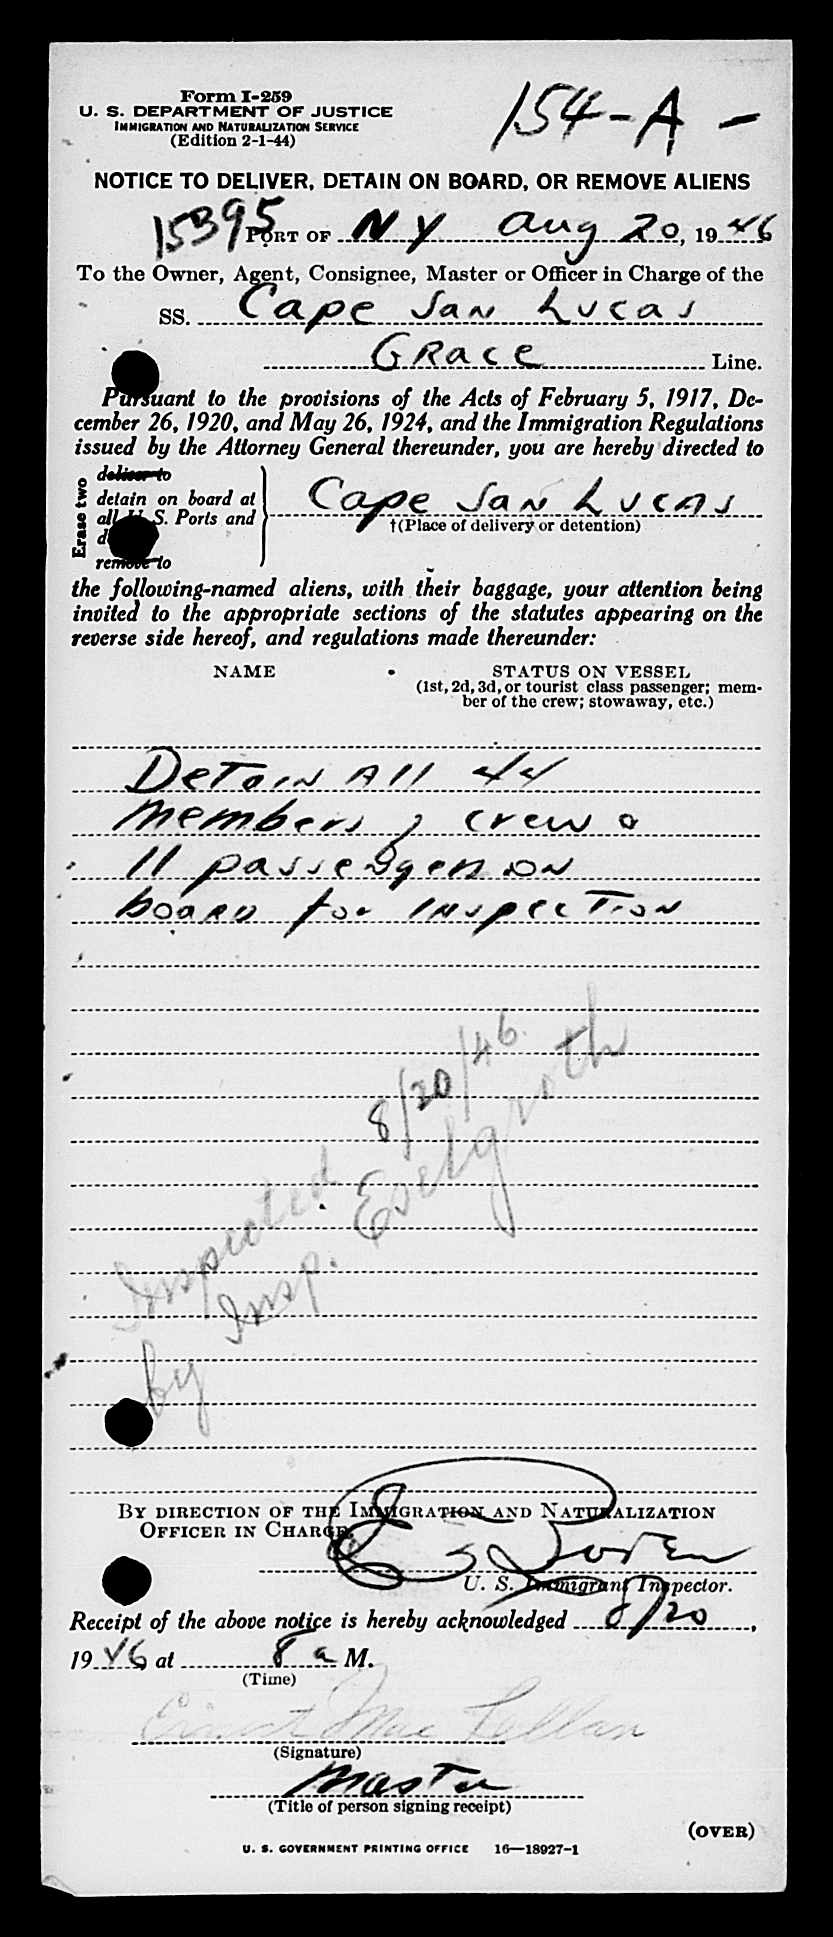 Form I-259
U. S. DEPARTMENT OF JUSTICE
IMMIGRATION AND NATURALIZATION SERVICE
(Edition 2-1-44)
154-A -
NOTICE TO DELIVER, DETAIN ON BOARD, OR REMOVE ALIENS
15395
PORT OF NY Aug 20, 1946
To the Owner, Agent, Consignee, Master or Officer in Charge of the
SS. Cape San Lucas
GRace Line.
Pursuant to the provisions of the Acts of February 5, 1917, De-
cember 26, 1920, and May 26, 1924, and the Immigration Regulations
issued by the Attorney General thereunder, you are hereby directed to
Erase two
deliver to
detain on board at
all U. S. Ports and
remove to
Cape San Lucas
†(Place of delivery or detention)
the following-named aliens, with their baggage, your attention being
invited to the appropriate sections of the statutes appearing on the
reverse side hereof, and regulations made thereunder:
NAME STATUS ON VESSEL
(1st, 2d, 3d, or tourist class passenger; mem-
ber of the crew; stowaway, etc.)
Detain All 44
members crew
11 passengers on
board for inspection
Inspected 8/20/46
by Insp. Eselgroth
BY DIRECTION OF THE IMMIGRATION AND NATURALIZATION
OFFICER IN CHARGE.
U. S. Immigrant Inspector.
Receipt of the above notice is hereby acknowledged 8/20,
1946 at 8 a M.
(Time)
Ernest Mac Lellan
(Signature)
Master
(Title of person signing receipt)
(OVER)
U. S. GOVERNMENT PRINTING OFFICE 16—18927-1